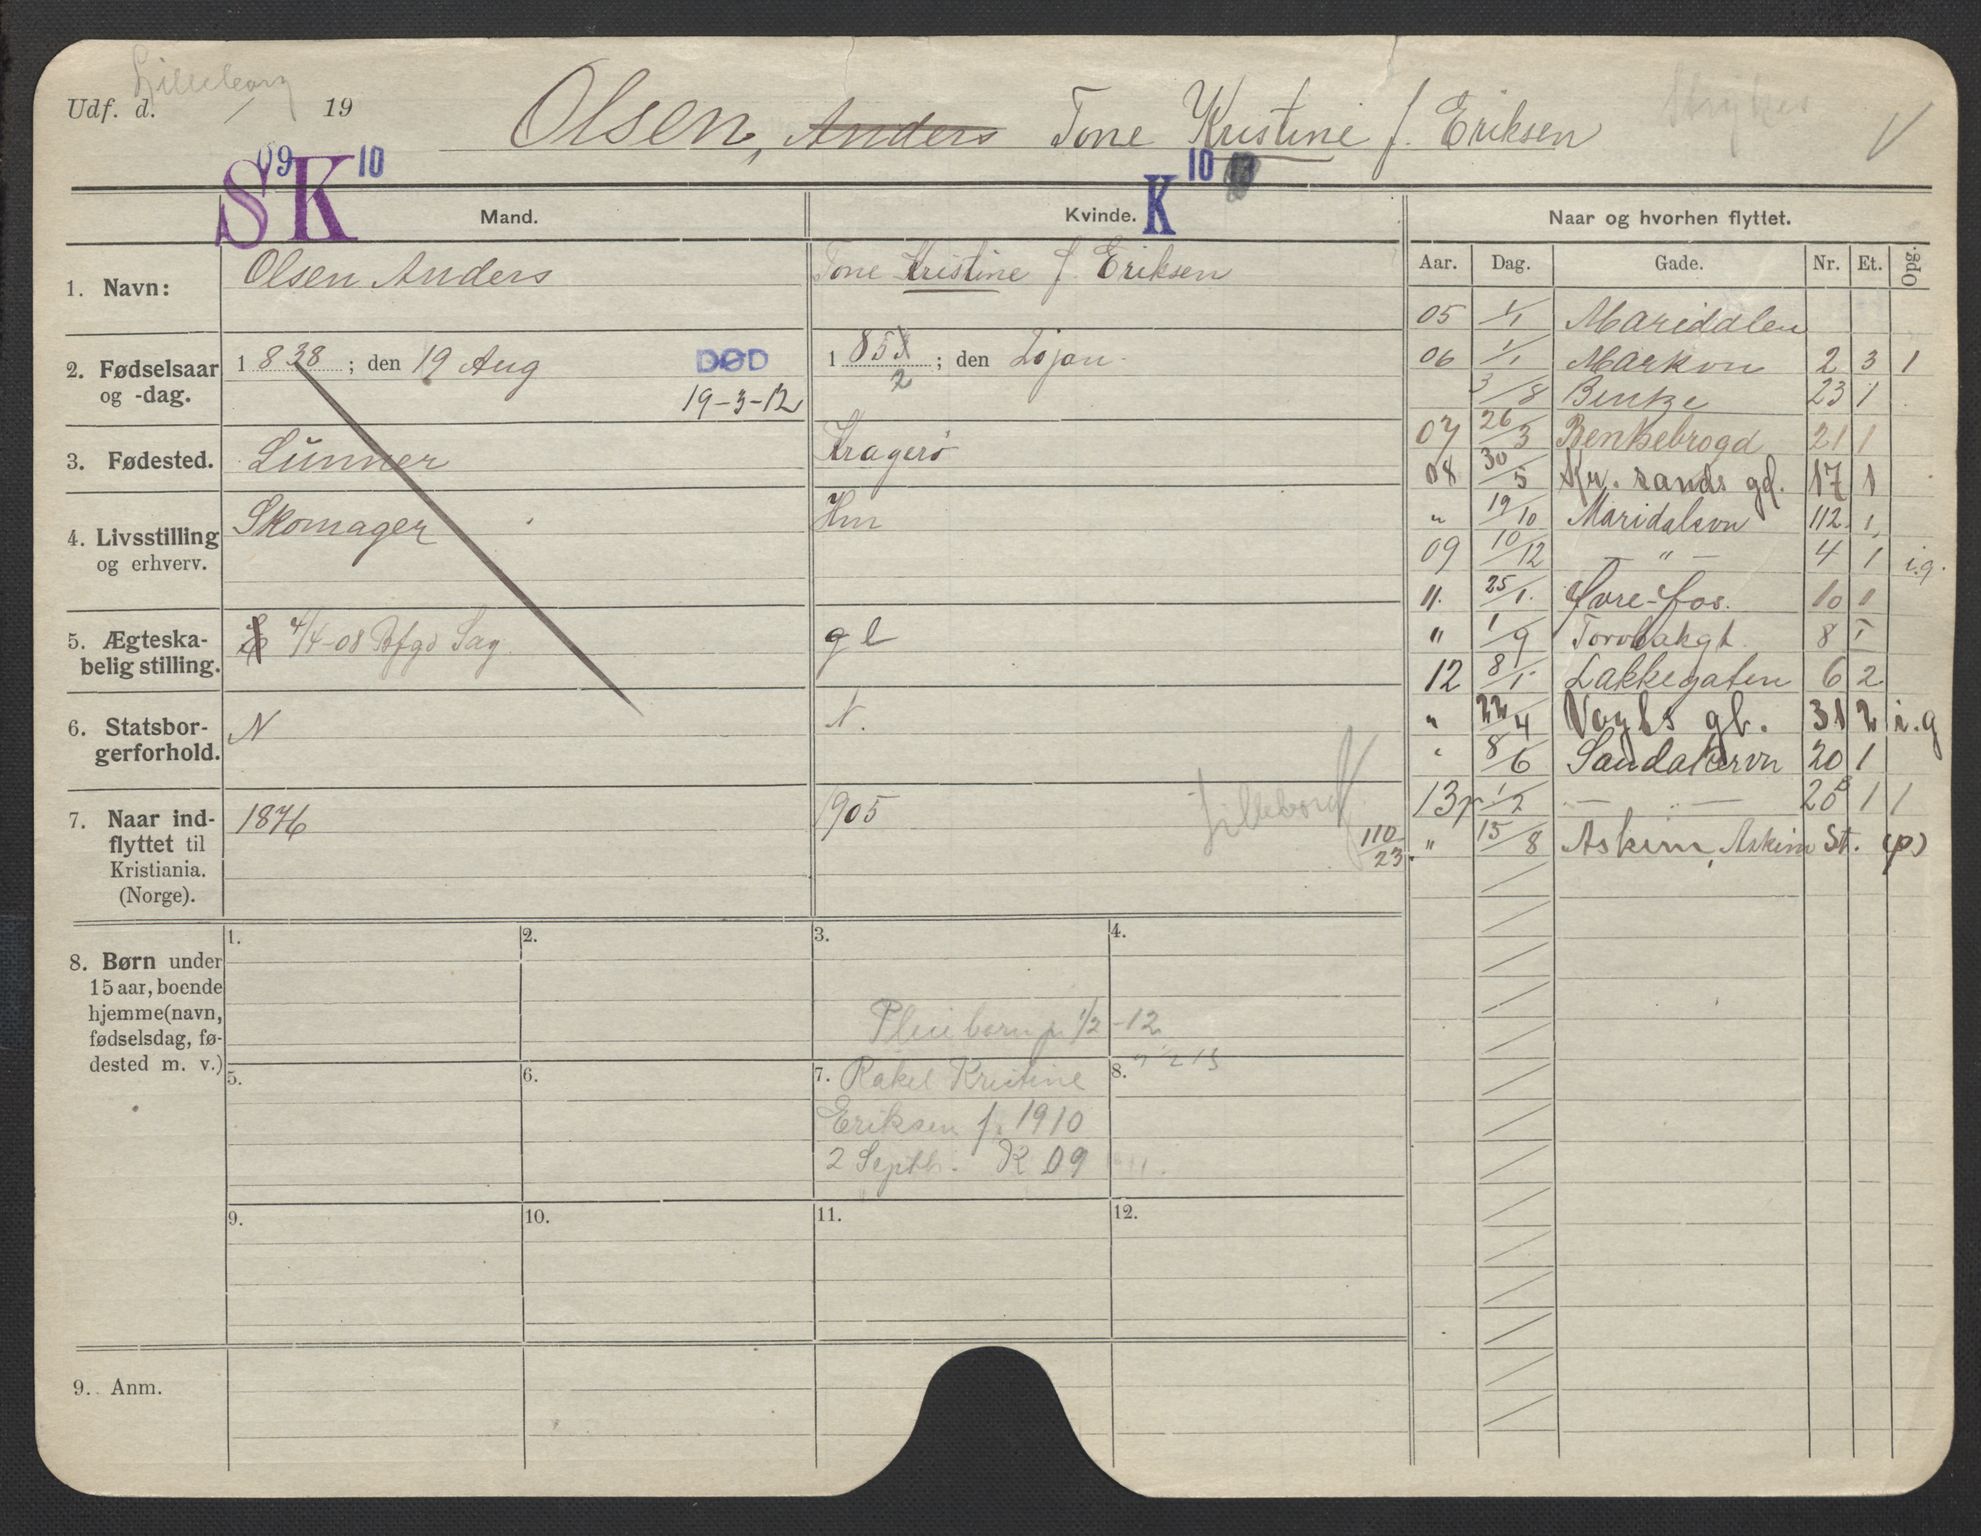 Lilleborg
Udf. d. / 19
Olsen, Anders Tone Kristine f. Eriksen
S 09 K 10
K 10
Mand. Kvinde. Naar og hvorhen flyttet.
Aar. Dag. Gade. Nr. Et. Opg.
1. Navn:
Olsen Anders
Tone Kristine f. Eriksen
2. Fødselsaar
og -dag.
1 838 ; den 19 Aug
DØD
19-3-12
1 85 ; den 20 jan.
2
3. Fødested.
Lunner
Kragerø
4. Livsstilling
og erhverv.
Skomager
Hm
5. Ægteska-
belig stilling.
4/4-08 Bfgd Sag
gl
6. Statsbor-
gerforhold.
N
N.
7. Naar ind-
flyttet til
Kristiania.
(Norge).
1876
1905
Lilleborg
110
23.
05 1/1 Mariddalen
06 1/1 Markvn 2 3 1
3/8 Bentze 23 1
07 26/3 Bentsebrogd 21 1
08 30/5 Kr. sands gd. 17 1
" 19/10 Maridalsvn 112. 1
09 10/12 — " — 4 1 i.g.
11. 25/1. Øvre-fos. 10 1
" 1/9 Torvbakgt. 8 1
12 8/1 Lakkegaten 6 2
" 22/4 Vogts gt. 31 2 i.g
" 8/6 Sandakervn 20 1
13 1/2 — — 20B 1 1
" 15/8 Askim, Askim St. (p)
8. Børn under
15 aar, boende
hjemme (navn,
fødselsdag, fø-
dested m. v.)
1. 2. 3. 4.
Pleiebarn 1/2 -12
5. 6. 7. 8.
Rakel Kristine
Eriksen f. 1910
2 Septb. K 09
9. 10. 11. 12.
9. Anm.